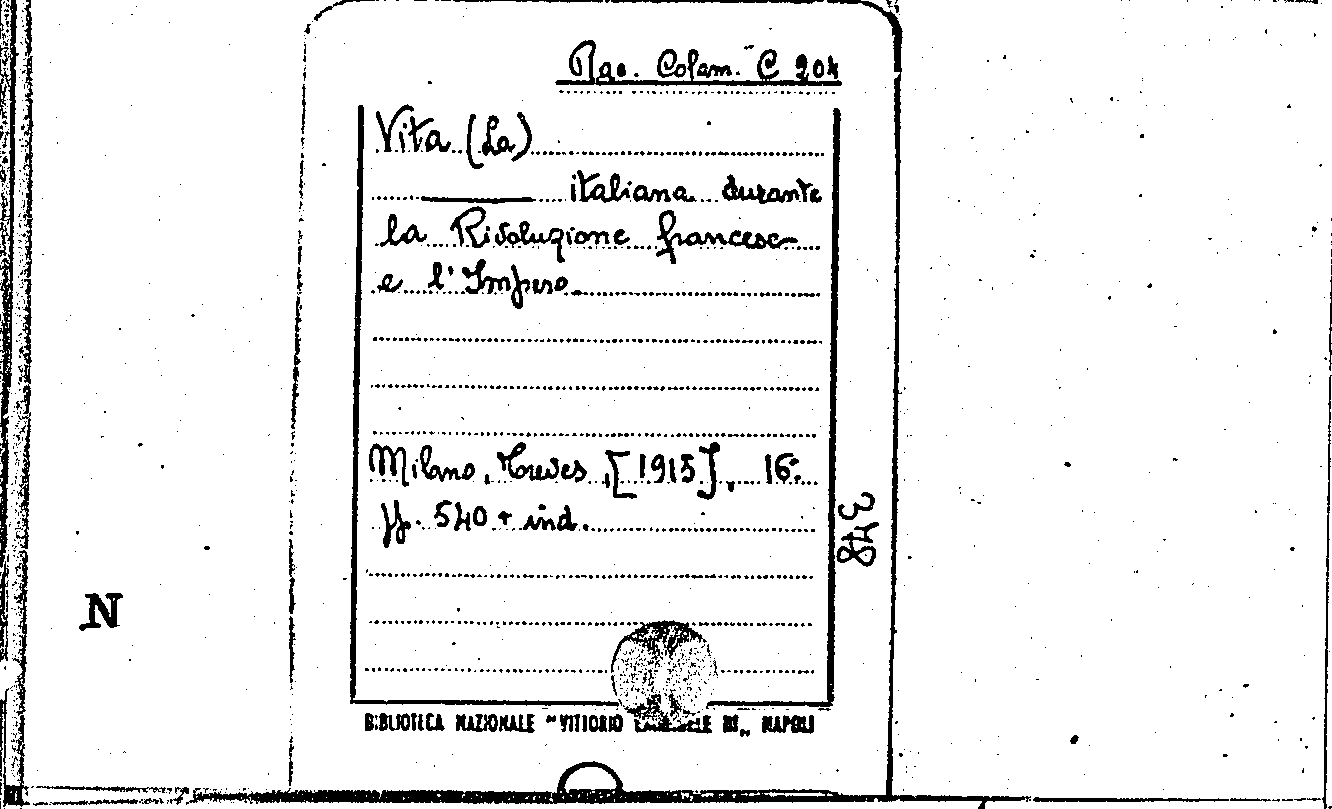 Rac. Colam. C 204
Vita (La)
italiana durante
la Rivoluzione francese
e l'Impero.
Milano, Treves, [1915]. 16°.
pp. 540 + ind.
378
N
BIBLIOTECA NAZIONALE "VITTORIO EMANUELE III„ NAPOLI